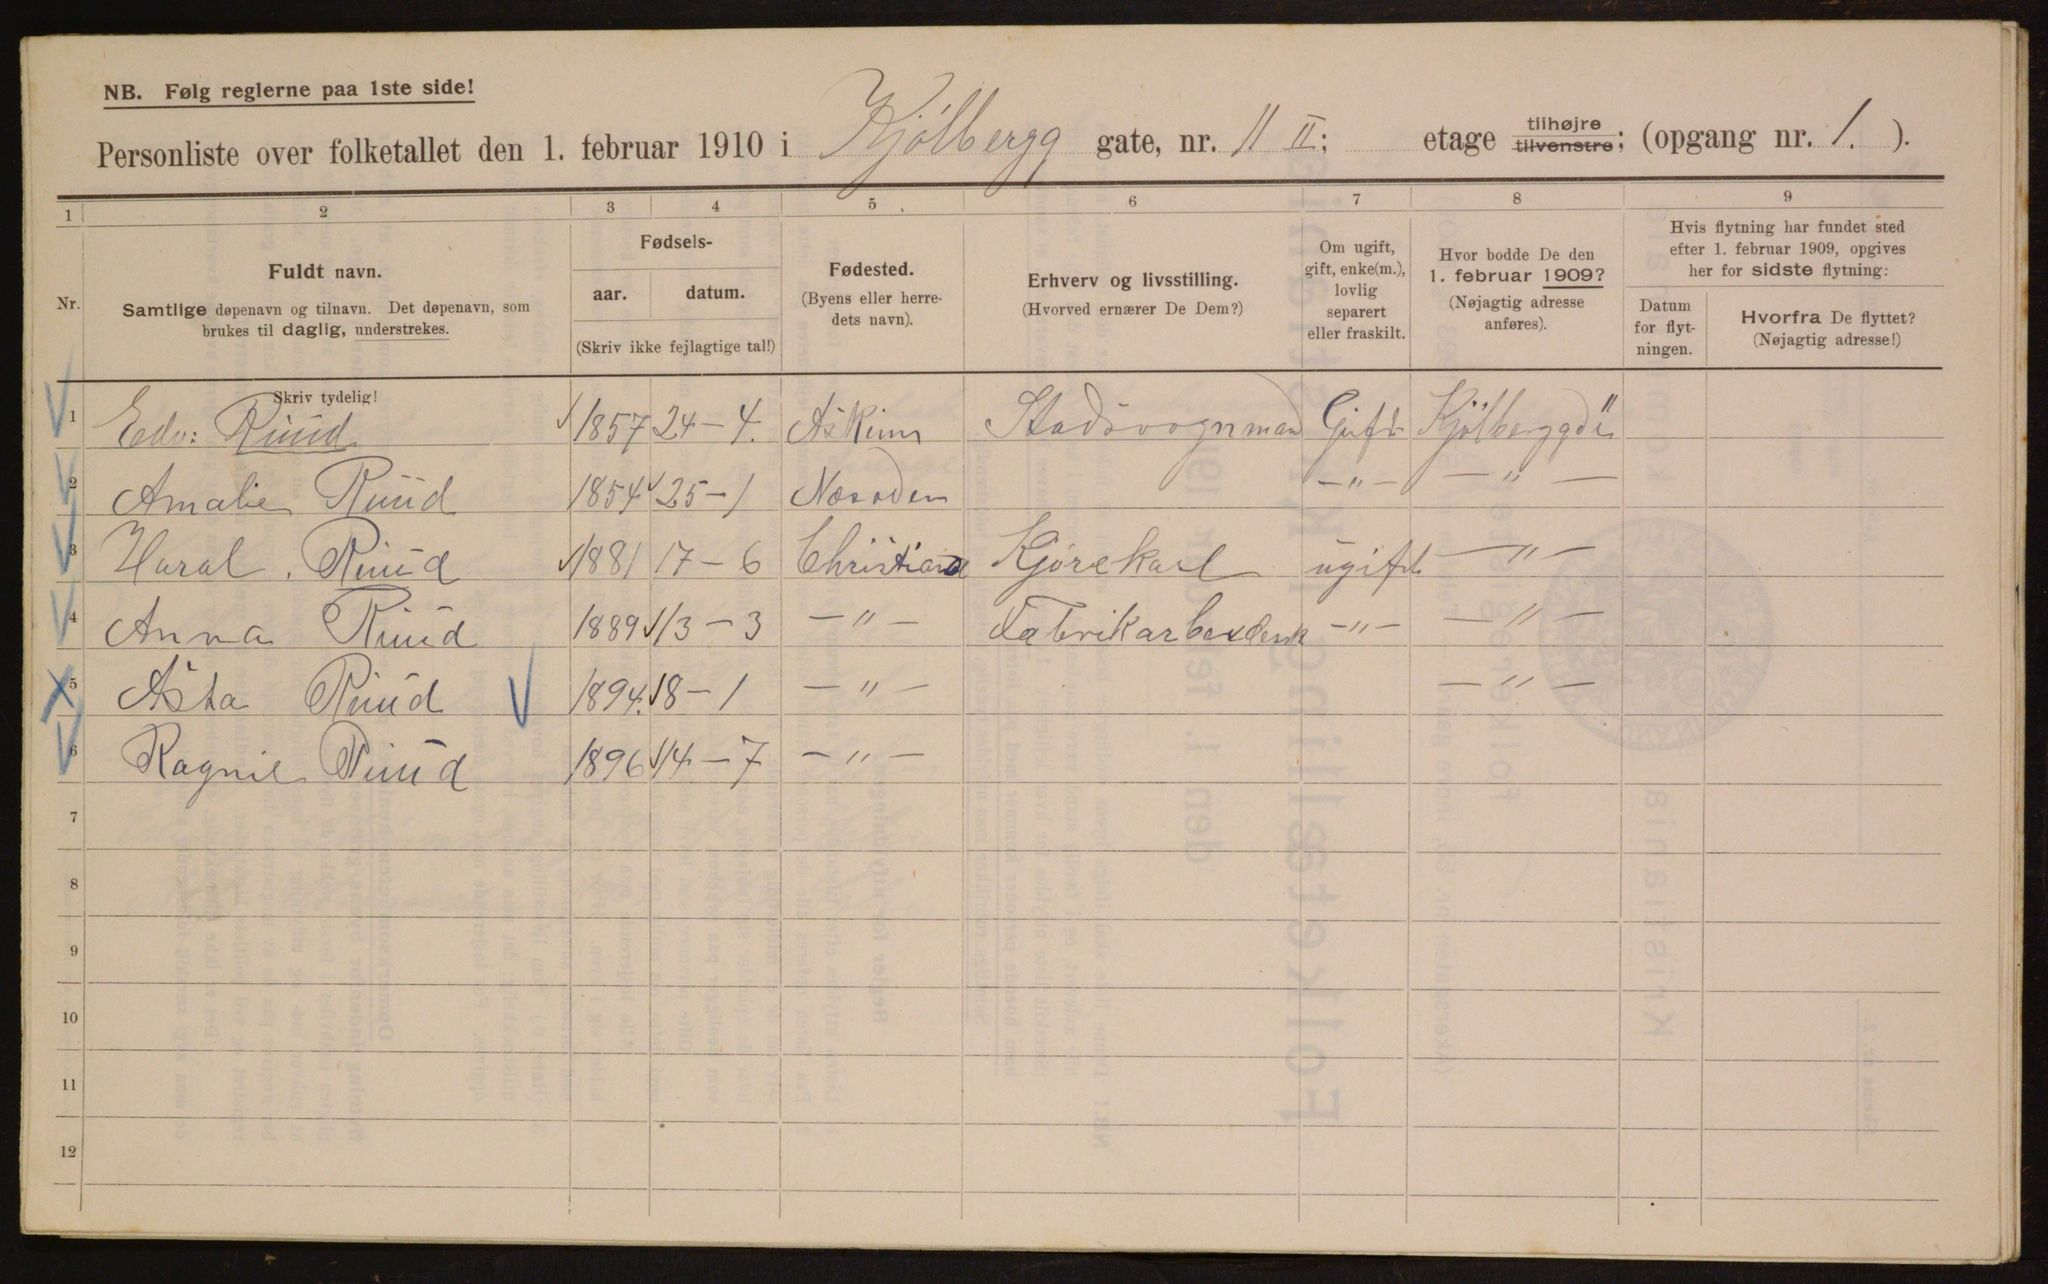 NB. Følg reglerne paa 1ste side!
Personliste over folketallet den 1. februar 1910 i Kjølbergg gate, nr. 11 II; etage tilhøjre tilvenstre; (opgang nr. 1. ).
1 2 3 4 5 6 7 8 9
Nr.
Fuldt navn.
Samtlige døpenavn og tilnavn. Det døpenavn, som
brukes til daglig, understrekes.
Skriv tydelig!
Fødsels-
aar. datum.
(Skriv ikke fejlagtige tal!)
Fødested.
(Byens eller herre-
dets navn).
Erhverv og livsstilling.
(Hvorved ernærer De Dem?)
Om ugift,
gift, enke(m.),
lovlig
separert
eller fraskilt.
Hvor bodde De den
1. februar 1909?
(Nøjagtig adresse
anføres).
Hvis flytning har fundet sted
efter 1. februar 1909, opgives
her for sidste flytning:
Datum
for flyt-
ningen.
Hvorfra De flyttet?
(Nøjagtig adresse!)
1 Edv: Ruud 1857 24 – 4. Askim Stadsvognman Gift Kjølberggd 11
2 Amalie Ruud 1854 25 – 1 Næsoden – " – – " –
3 Haral. Ruud 1881 17 – 6 Christiania Kjørekarl ugift – " –
4 Anna Ruud 1889 13 – 3 – " – Fabrikarbeidersk – " – – " –
5 Asta Ruud 1894. 18 – 1 – " – – " –
6 Ragnil Ruud 1896 14 – 7 – " –
7
8
9
10
11
12